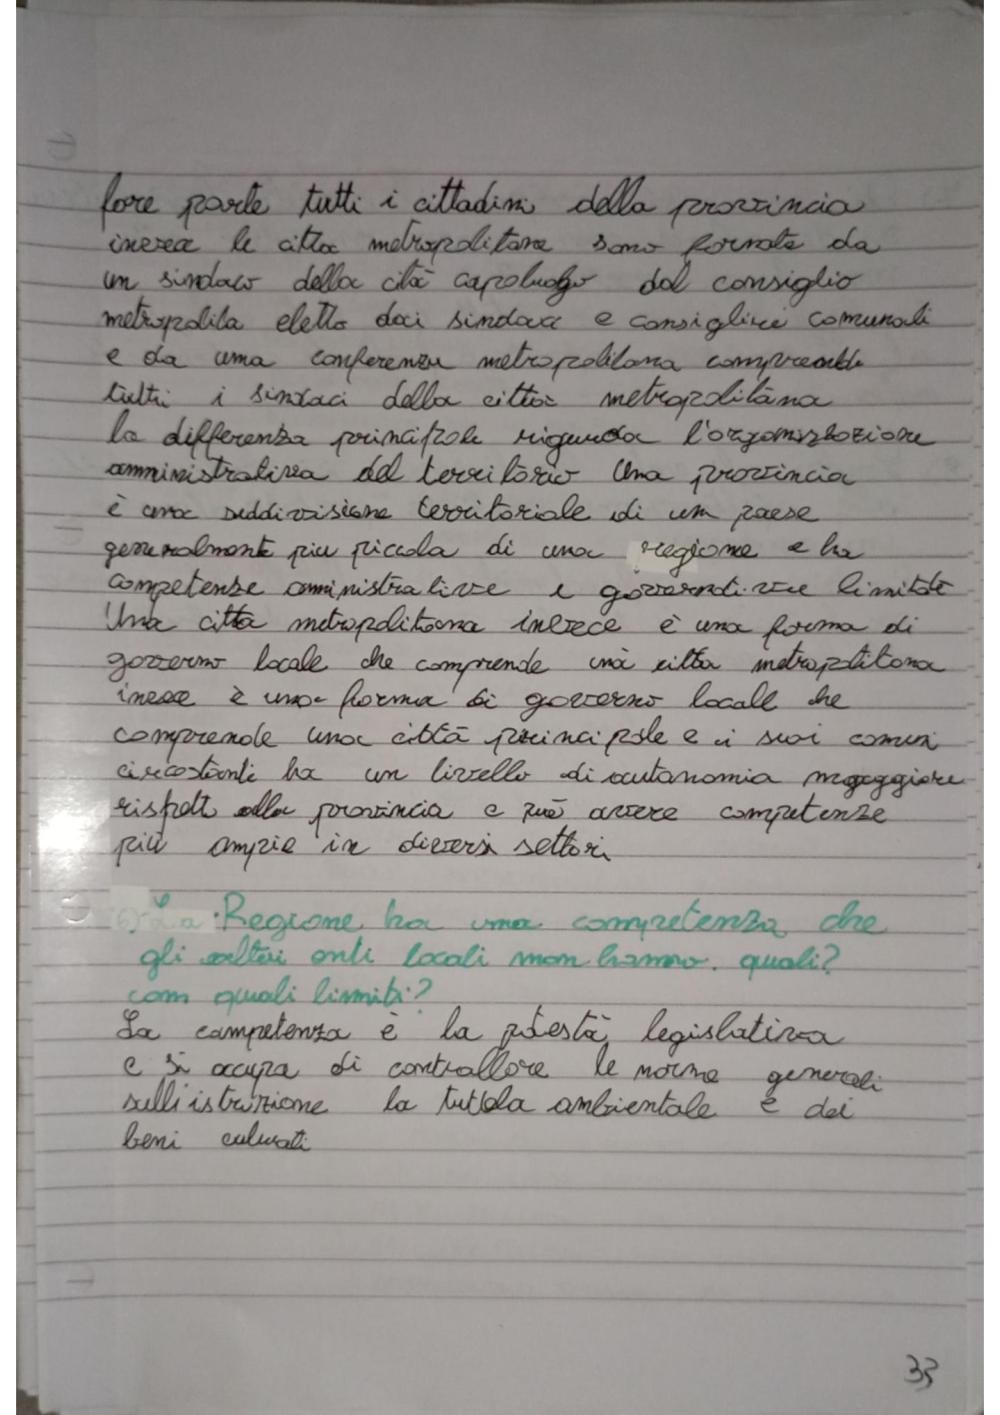 fare parte tutti i cittadini della provincia
invece le citta metropolitane sono formate da
un sindaco della cità capoluogo dal consiglio
metropolita eletto dai sindaci e consiglieri comunali
e da una conferenza metropolitana comprende
tutti i sindaci della citta metropolitana
la differenza principale riguarda l'organizzazione
amministrativa del territorio Una provincia
è una suddivisione territoriale di un paese
generalmente piu piccola di una regione e ha
competenze amministrative e governative limitate
Una citta metropolitana invece è una forma di
governo locale che comprende una citta metropolitana
invece è una forma di governo locale che
comprende una città principale e i suoi comuni
circostanti ha un livello di autonomia maggiore
rispett alla provincia e può avere competenze
più ampie in diversi settori
6) La Regione ha una competenza che
gli altri enti locali non hanno. quali?
con quali limiti?
La competenza è la potestà legislativa
e si occupa di controllare le norme generali
sull'istruzione la tutela ambientale e dei
beni culurati
33